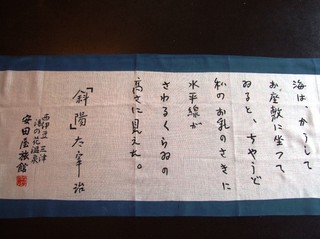 海は、かうして
お座敷に坐つて
ゐると、ちやうど
私のお乳のさきに
水平線が
さわるくらゐの
高さに見えた。
「斜陽」太宰治
西伊豆 三津
湯の花温泉
安田屋旅館